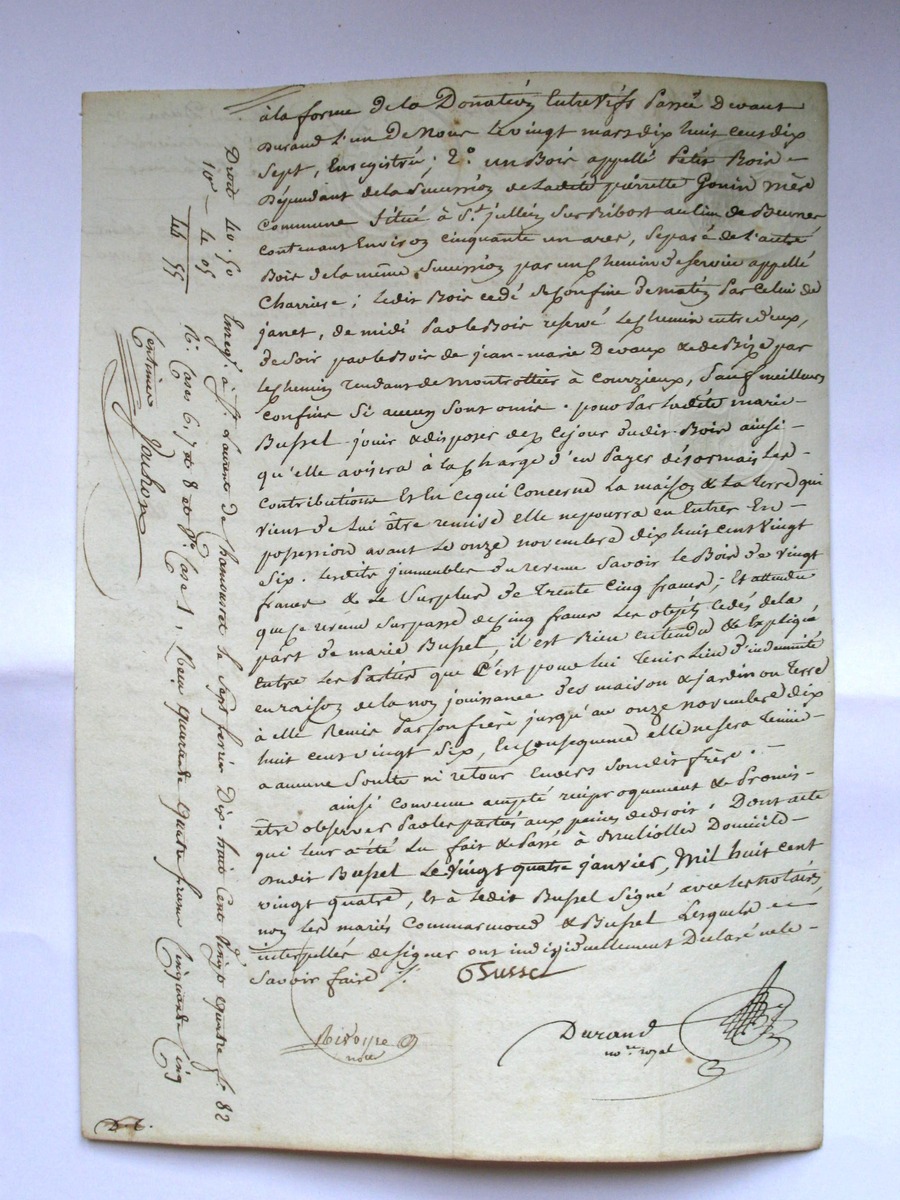 à la forme de la Donation Entrevifs Passée Devant
Durand L'un De Nous Le vingt mars dix huit cent dix
Sept, Enregistrée; 2º. un Bois appellé Petit Bois -
Dépendant de la Succession de Ladite pierrette Gonin mère
commune Situé à St. jullien Sur Bibost au lieu de
contenant Environ cinquante un ares, Séparé de L'autre
Bois de la même Succession par un chemin de Service appellé
Charriere; Ledit Bois cedé Se confine de matin Par Celui de
janet, de midi Par le Bois reservé Le chemin entre deux,
de Soir par le Bois de jean-marie Devaux & de Bize par
Le chemin tendant de montrottier à Courzieux, Sauf meilleurs
confins Si aucun Sont omis. pour Par Ladite marie
Bussel jouir & disposer dez ce jour dudit Bois ainsi -
qu'elle avisera à la charge d'en Payer désormais Les -
Contributions Et En ce qui Concerne La maison & La terre qui
vient de Lui être remise elle ne pourra en Entrer En -
possession avant Le onze novembre dix huit cent vingt
Six. Lesdits immeubles du revenu Savoir Le Bois de vingt
francs & Le Surplus de trente Cinq francs; Et attendu
que ce revenu Surpasse de cinq francs Les objets cedés de la
part de marie Bussel, il est Bien entendu & Expliqué
Entre Les Parties que C'est pour lui Tenir Lieu d'indemnité
en raison de la non jouissance des maison & jardin ou Terre
à elle Remis Par Son frère jusqu'au onze novembre dix
huit cent vingt Six, En consequence elle ne Sera Tenue
a aucune Soulte ni retour Envers Son dit frère. -
ainsi Convenu accepté reciproquement & Promis -
être observer Par les parties aux peines de droit. Dont acte
qui leur a été Lu fait & Passé à Brullioles Domicile -
dudit Bussel Le vingt quatre janvier, Mil huit cent
vingt quatre, Et à Ledit Bussel Signé avec les notaires
non les mariés Commarmond & Bussel Lesquels -
interpellés de Signer ont individuellement Declaré ne le -
Savoir faire ./.
Bussel
notre
Durand
nore. royal
Droit 40. 50
10e — 4. 05
44 55
Enregé. à St. Laurent de chamousset le Sept fevrier Dix-huit Cent vingt quatre fo. 82
R. Cases 6, 7 et 8 et Vo. Case 1, Reçu quarante quatre francs cinquante Cinq
Centimes